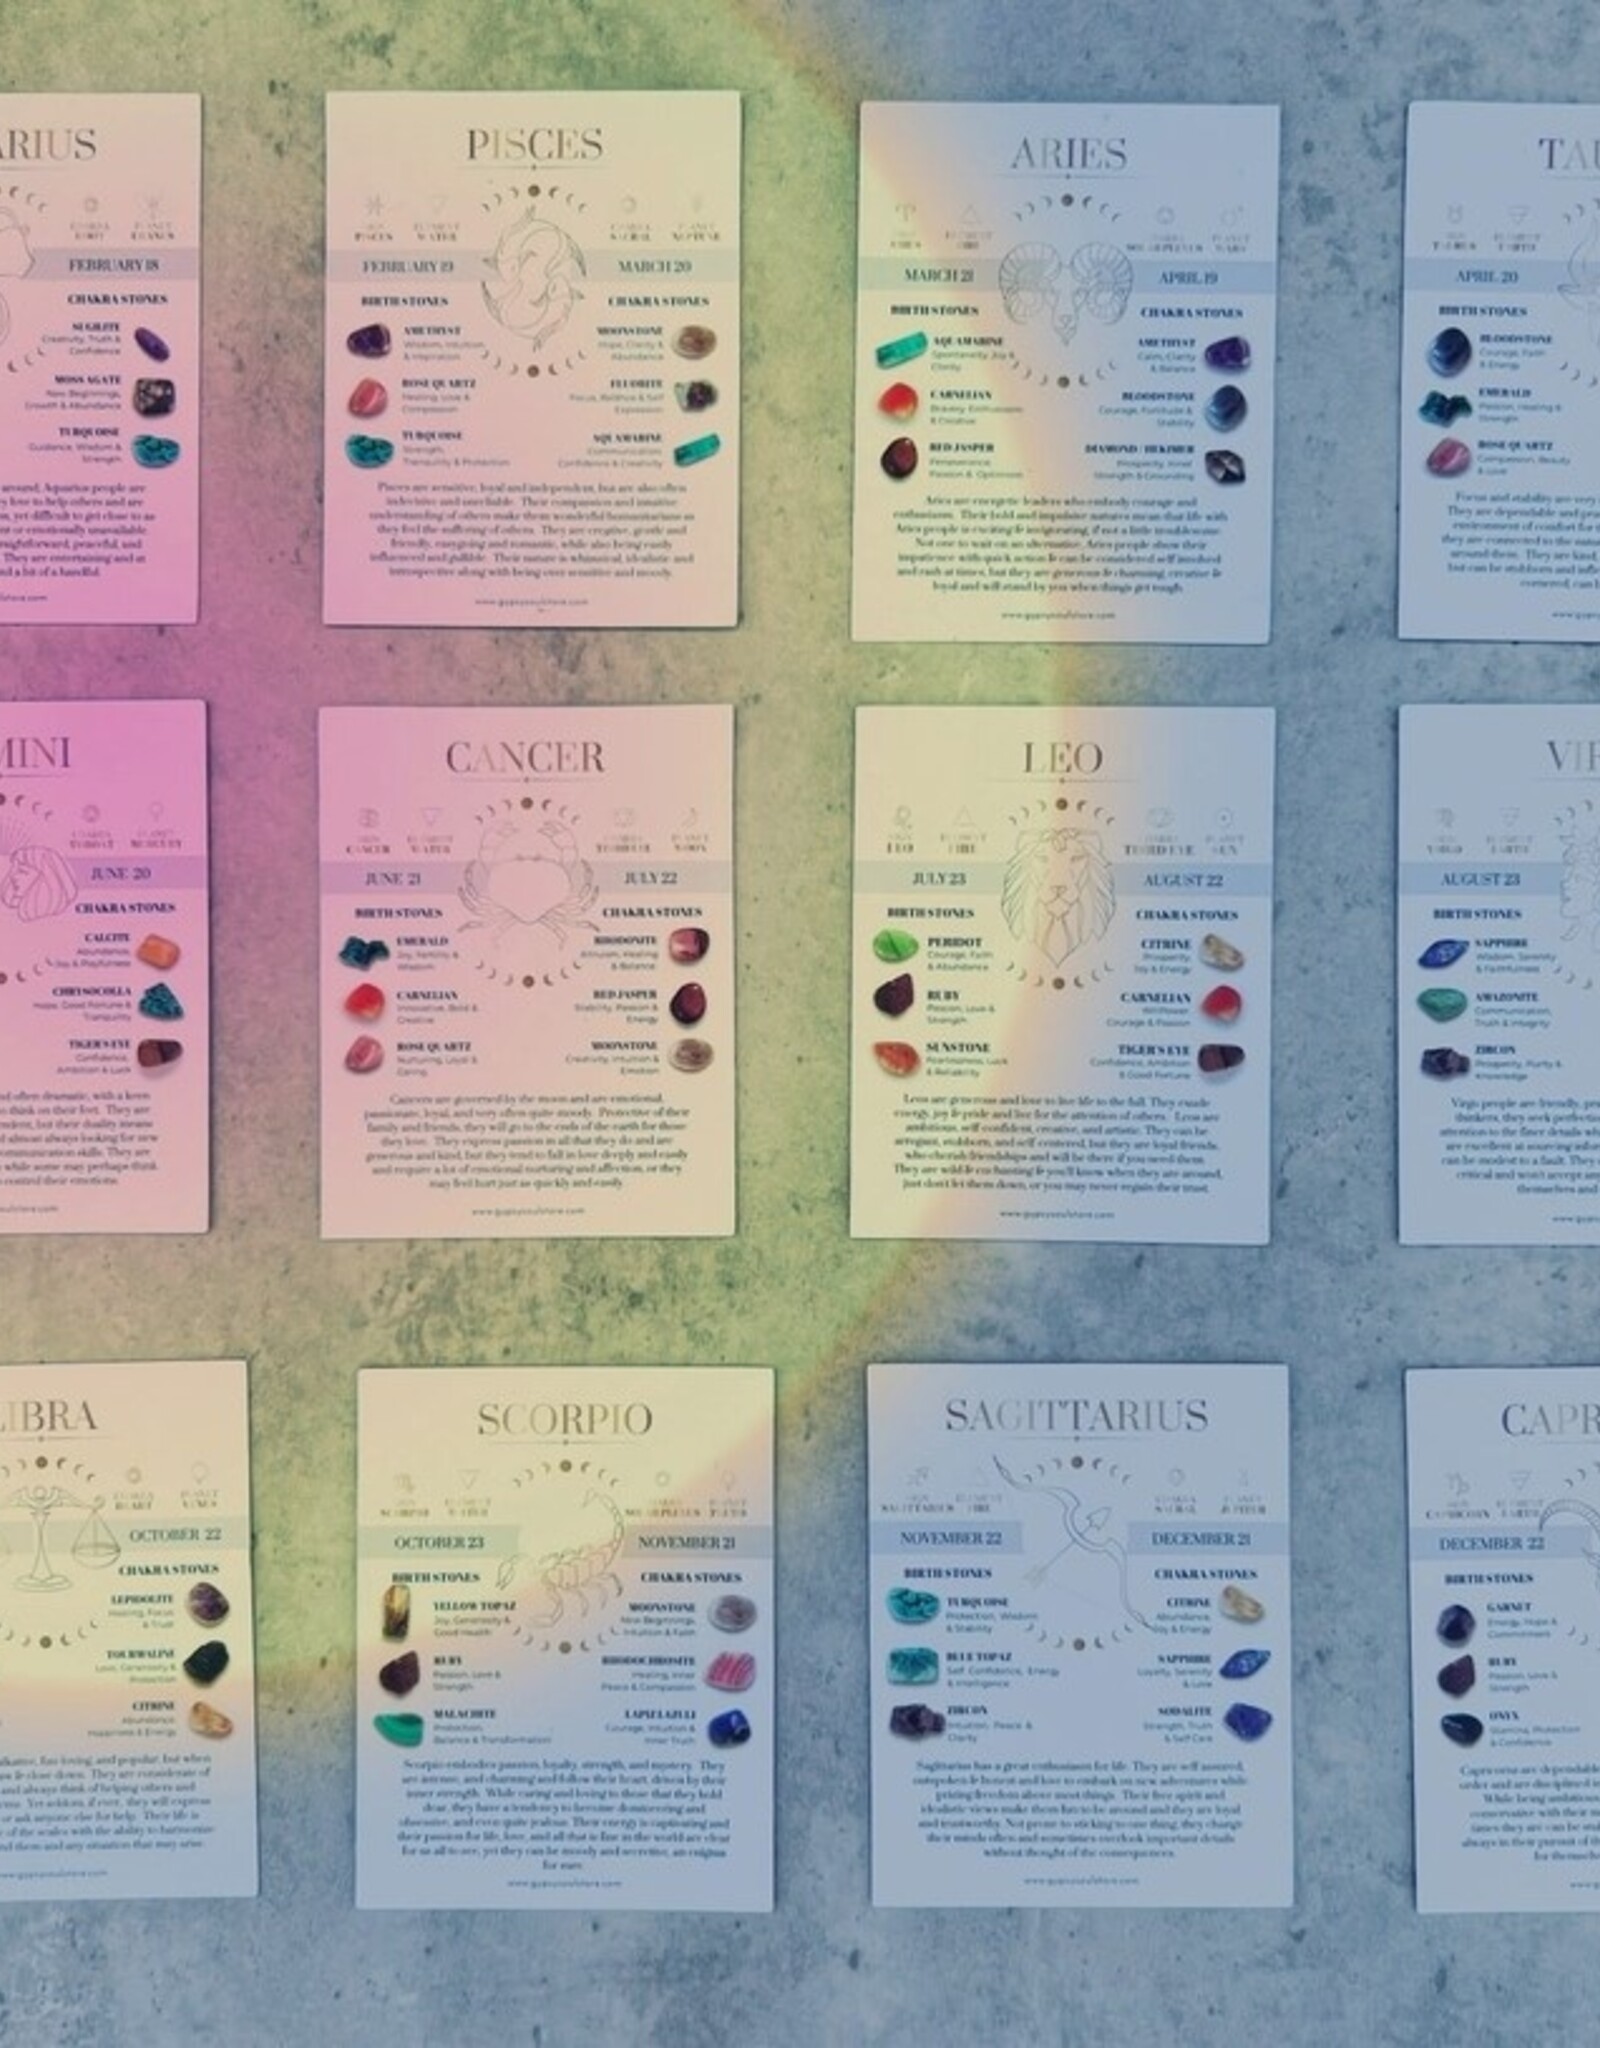 ARIUS
FEBRUARY 18
CHAKRA STONES
SUGILITE
Creativity, Truth &
Confidence
MOSS AGATE
New Beginnings,
Growth & Abundance
TURQUOISE
Guidance, Wisdom &
Strength
around, Aquarius people are
love to help others and are
yet difficult to get close to as
or emotionally unavailable
peaceful, and
They are entertaining and at
and a bit of a handful.
PISCES
PISCES WATER SACRAL NEPTUNE
FEBRUARY 19 MARCH 20
BIRTH STONES CHAKRA STONES
AMETHYST
Wisdom, Intuition
& Inspiration
ROSE QUARTZ
Healing, Love &
Compassion
TURQUOISE
Strength,
Tranquility & Protection
MOONSTONE
Hope, Clarity &
Abundance
FLUORITE
Focus, Balance & Self
Expression
AQUAMARINE
Communication,
Confidence & Creativity
Pisces are sensitive, loyal and independent, but are also often
indecisive and unreliable. Their compassion and intuitive
understanding of others make them wonderful humanitarians as
they feel the suffering of others. They are creative, gentle and
friendly, easygoing and romantic, while also being easily
influenced and gullible. Their nature is whimsical, idealistic and
introspective along with being over sensitive and moody.
www.gypsysoulstore.com
ARIES
MARCH 21 APRIL 19
BIRTH STONES CHAKRA STONES
AQUAMARINE
Spontaneity, Joy &
Clarity
CARNELIAN
Bravery, Enthusiasm
& Creative
RED JASPER
Perseverance,
Passion & Optimism
AMETHYST
Calm, Clarity
& Balance
BLOODSTONE
Courage, Fortitude &
Stability
DIAMOND / HERKIMER
Prosperity, Inner
Strength & Grounding
Aries are energetic leaders who embody courage and
enthusiasm. Their bold and impulsive natures mean that life with
Aries people is exciting & invigorating, if not a little troublesome.
Not one to wait on an alternative, Aries people show their
impatience with quick action & can be considered self involved
and rash at times, but they are generous & charming, creative &
loyal and will stand by you when things get tough.
www.gypsysoulstore.com
TAU
APRIL 20
BIRTH STONES
BLOODSTONE
Courage, Faith
& Energy
EMERALD
Passion, Healing &
Strength
ROSE QUARTZ
Compassion, Beauty
& Love
Focus and stability are very
They are dependable and
environment of comfort for
they are connected to the
around them. They are kind,
but can be stubborn and
MINI
JUNE 20
CHAKRA STONES
CALCITE
Abundance,
Joy & Playfulness
CHRYSOCOLLA
Hope, Good Fortune &
Tranquility
TIGER'S EYE
Confidence,
Ambition & Luck
and often dramatic, with a keen
think on their feet. They are
but their duality means
almost always looking for new
communication skills. They are
while some may perhaps think
control their emotions.
CANCER
JUNE 21 JULY 22
BIRTH STONES CHAKRA STONES
EMERALD
Joy, Fertility &
Wisdom
CARNELIAN
Innovative, Bold &
Creative
ROSE QUARTZ
Nurturing, Loyal &
Caring
RHODONITE
Altruism, Healing
& Balance
RED JASPER
Stability, Passion &
Energy
MOONSTONE
Creativity, Intuition &
Emotion
Cancers are governed by the moon and are emotional,
passionate, loyal, and very often quite moody. Protective of their
family and friends, they will go to the ends of the earth for those
they love. They express passion in all that they do and are
generous and kind, but they tend to fall in love deeply and easily
and require a lot of emotional nurturing and affection, or they
may feel hurt just as quickly and easily.
www.gypsysoulstore.com
LEO
JULY 23 AUGUST 22
BIRTH STONES CHAKRA STONES
PERIDOT
Courage, Faith
& Abundance
RUBY
Passion, Love &
Strength
SUNSTONE
Fearlessness, Luck
& Reliability
CITRINE
Prosperity,
Joy & Energy
CARNELIAN
Willpower,
Courage & Passion
TIGER'S EYE
Confidence, Ambition
& Good Fortune
Leos are generous and love to live life to the full. They exude
energy, joy & pride and live for the attention of others. Leos are
ambitious, self confident, creative, and artistic. They can be
arrogant, stubborn, and self centered, but they are loyal friends,
who cherish friendships and will be there if you need them.
They are wild & enchanting & you'll know when they are around,
just don't let them down, or you may never regain their trust.
www.gypsysoulstore.com
VIR
AUGUST 23
BIRTH STONES
SAPPHIRE
Wisdom, Serenity
& Faithfulness
AMAZONITE
Communication,
Truth & Integrity
ZIRCON
Prosperity, Purity &
Knowledge
Virgo people are friendly,
thinkers, they seek perfection
attention to the finer details
are excellent at sourcing
can be modest to a fault. They
critical and won't accept
themselves and
LIBRA
OCTOBER 22
CHAKRA STONES
LEPIDOLITE
Healing, Focus
& Trust
TOURMALINE
Love, Generosity &
Protection
CITRINE
Abundance,
Happiness & Energy
talkative, fun-loving, and popular, but when
& close down. They are considerate of
and always think of helping others and
Yet seldom, if ever, they will express
or ask anyone else for help. Their life is
of the scales with the ability to harmonize
and them and any situation that may arise.
SCORPIO
OCTOBER 23 NOVEMBER 21
BIRTH STONES CHAKRA STONES
YELLOW TOPAZ
Joy, Generosity &
Good Health
RUBY
Passion, Love &
Strength
MALACHITE
Protection,
Balance & Transformation
MOONSTONE
New Beginnings,
Intuition & Faith
RHODOCHROSITE
Healing, Inner
Peace & Compassion
LAPIZ LAZULI
Courage, Intuition &
Inner Truth
Scorpio embodies passion, loyalty, strength, and mystery. They
are intense, and charming and follow their heart, driven by their
inner strength. While caring and loving to those that they hold
dear, they have a tendency to become domineering and
obsessive, and even quite jealous. Their energy is captivating and
their passion for life, love, and all that is fine in the world are clear
for us all to see, yet they can be moody and secretive, an enigma
for sure.
www.gypsysoulstore.com
SAGITTARIUS
NOVEMBER 22 DECEMBER 21
BIRTH STONES CHAKRA STONES
TURQUOISE
Protection, Wisdom
& Stability
BLUE TOPAZ
Self Confidence, Energy
& Intelligence
ZIRCON
Intuition, Peace &
Clarity
CITRINE
Abundance,
Joy & Energy
SAPPHIRE
Loyalty, Serenity
& Love
SODALITE
Strength, Truth
& Self Care
Sagittarius has a great enthusiasm for life. They are self assured,
outspoken & honest and love to embark on new adventures while
prizing freedom above most things. Their free spirit and
idealistic views make them fun to be around and they are loyal
and trustworthy. Not prone to sticking to one thing, they change
their minds often and sometimes overlook important details
without thought of the consequences.
www.gypsysoulstore.com
CAPR
DECEMBER 22
BIRTH STONES
GARNET
Energy, Hope &
Commitment
RUBY
Passion, Love &
Strength
ONYX
Stamina, Protection
& Confidence
Capricorns are dependable
order and are disciplined
While being ambitious
conservative with their
times they can be
always in their pursuit of
for themselves